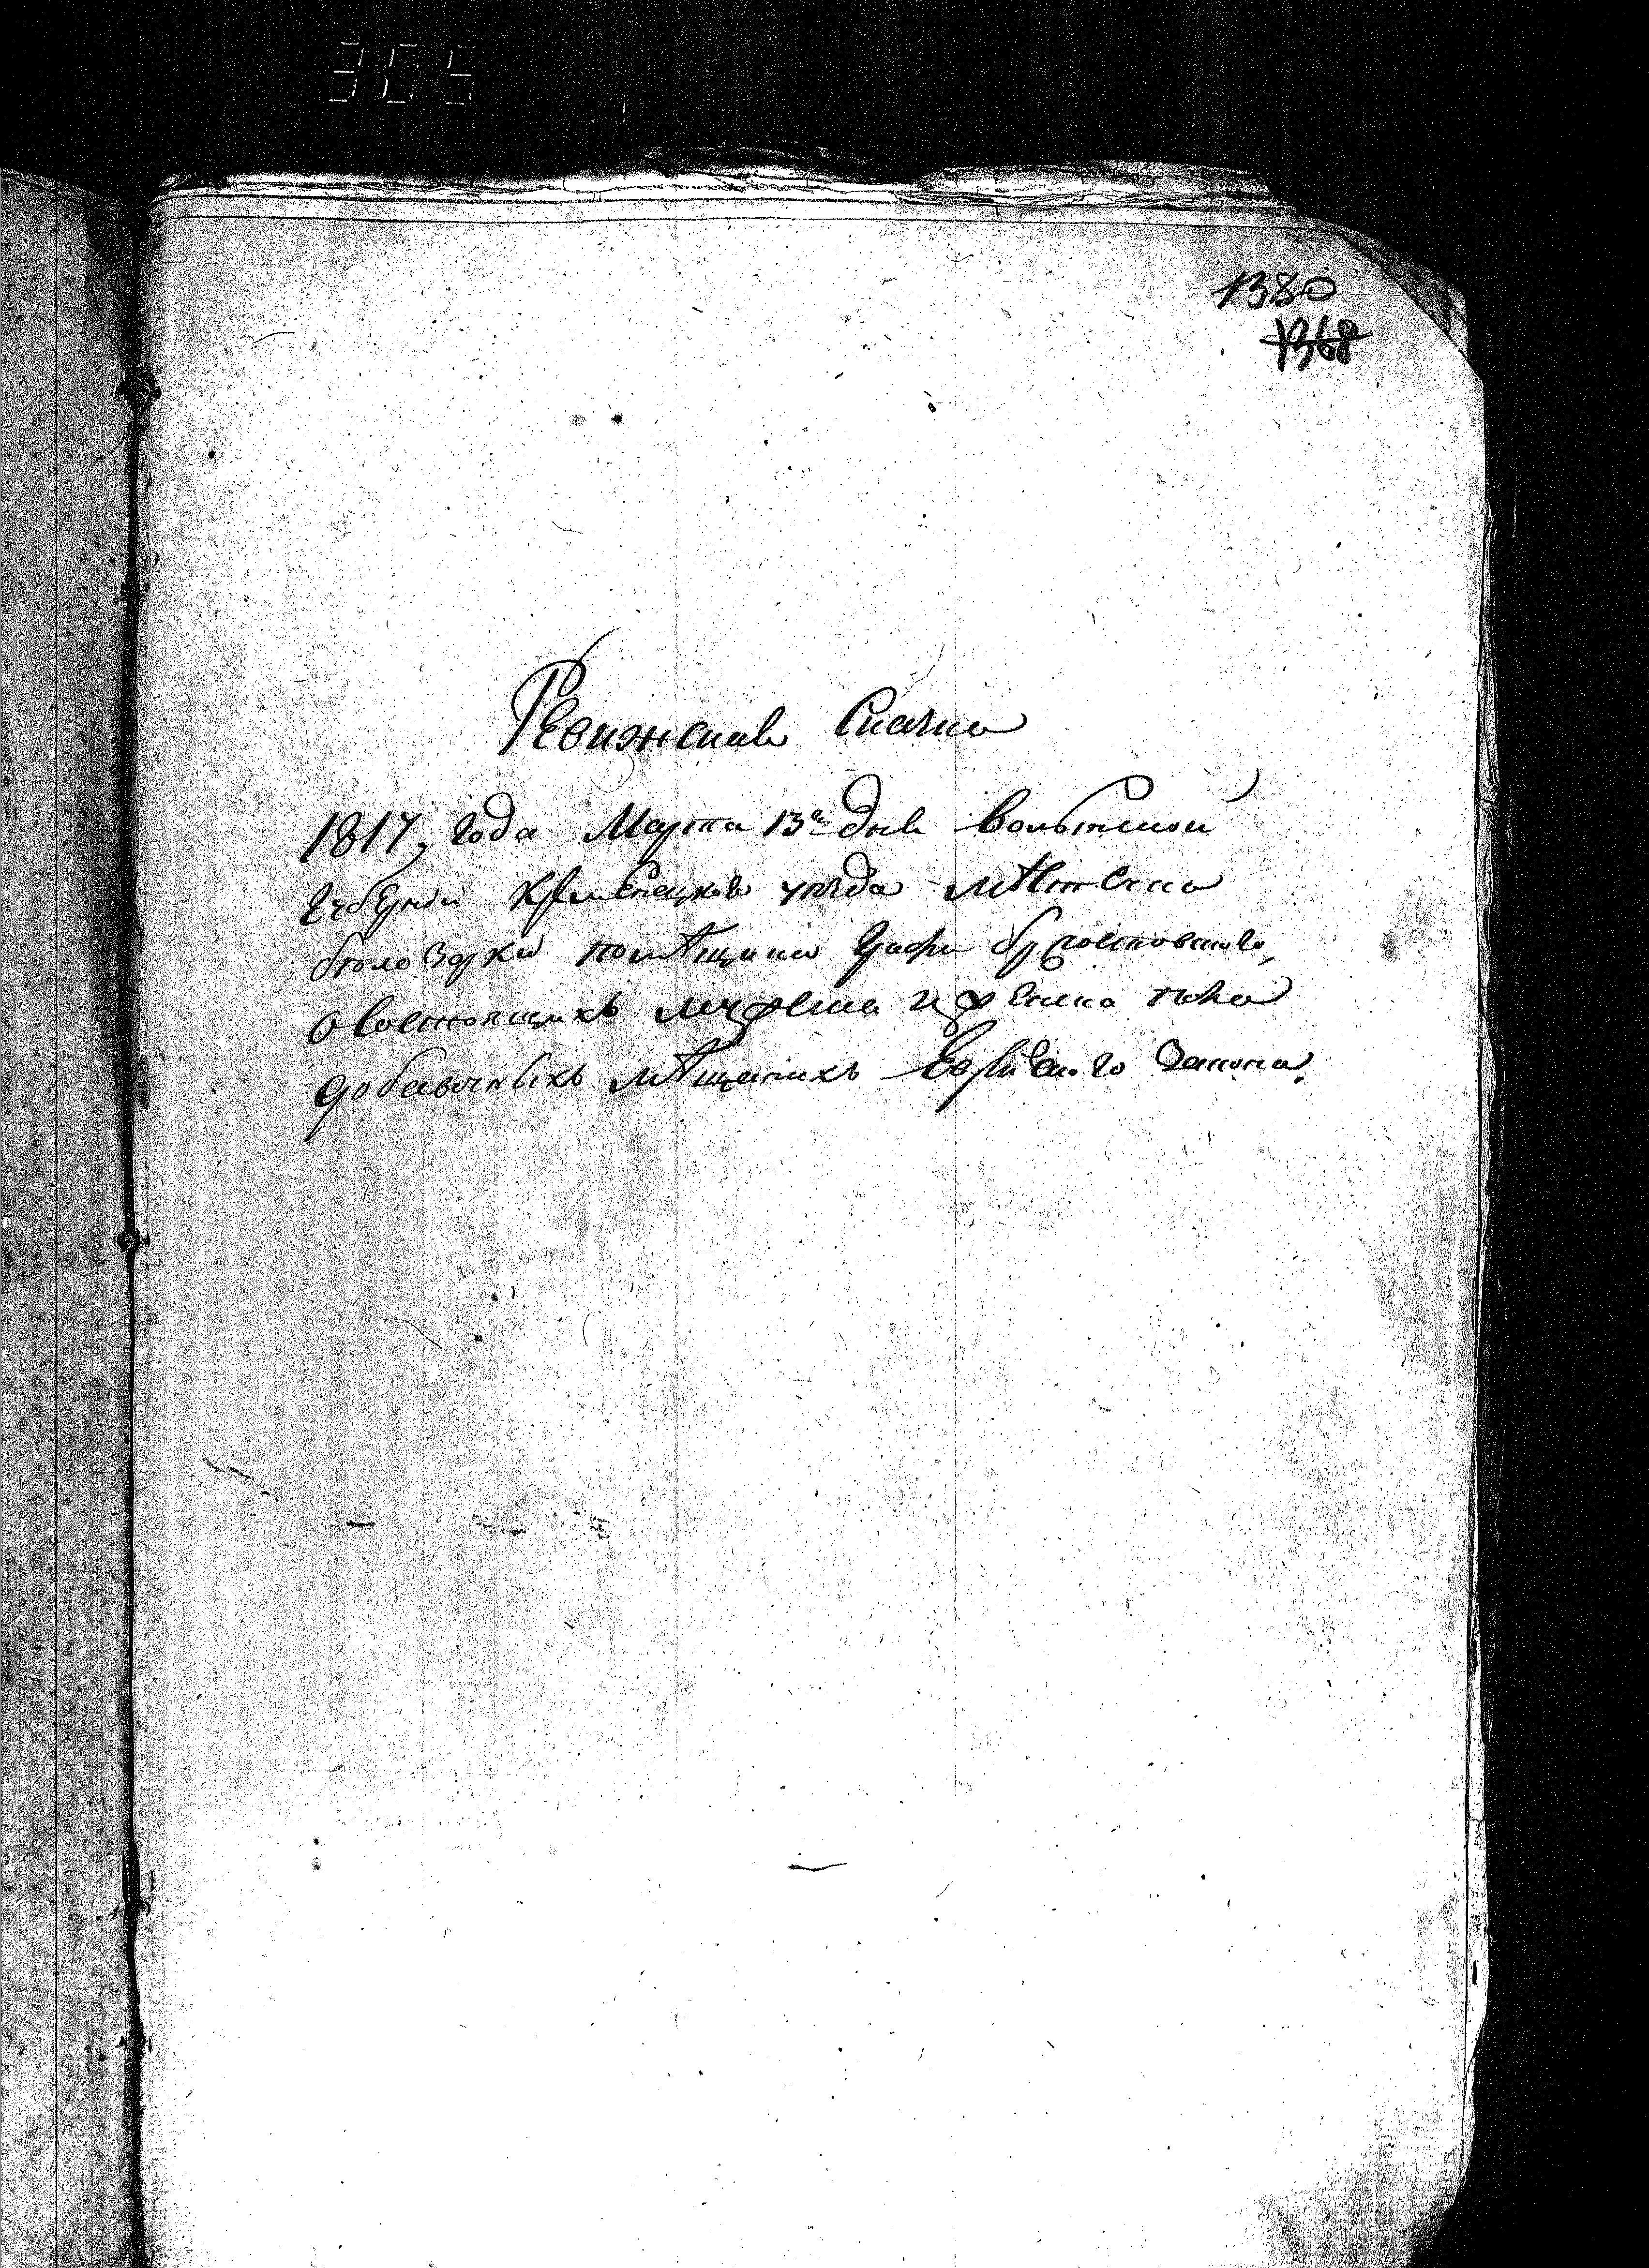 305
1380
1368
Ревизская Сказка
1817, года Марта 13го дня Волынской
Губернии Кременецкого уезда мѣстечка
бѣлозорки помѣщика Графа
о состоящихъ мужеска и женска пола
добавочныхъ мѣщанахъ Еврейского Закона.